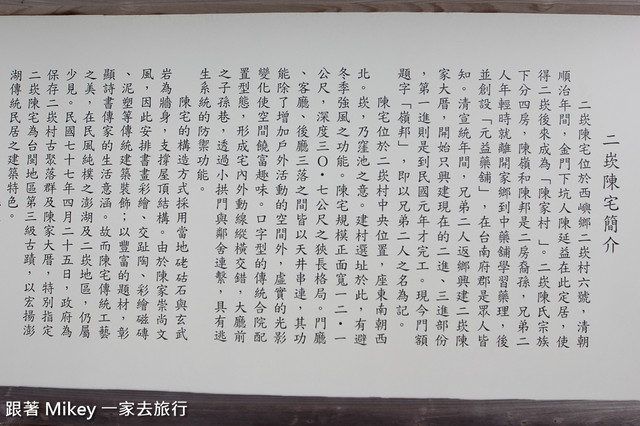 二崁陳宅簡介
二崁陳宅位於西嶼鄉二崁村六號，清朝
順治年間，金門下坑人陳延益在此定居，使
得二崁後來成為「陳家村」。二崁陳氏宗族
下分四房，陳嶺和陳邦是二房裔孫，兄弟二
人年輕時就離開家鄉到中藥舖學習藥理，後
並創設「元益藥舖」，在台南府郡是眾人皆
知。清宣統年間，兄弟二人返鄉興建二崁陳
家大厝，開始只興建現在的二進、三進部份
，第一進則是到民國元年才完工。現今門額
題字「嶺邦」，即以兄弟二人之名為記。
陳宅位於二崁村中央位置，座東南朝西
北。崁，乃窪池之意。建村選址於此，有避
冬季強風之功能。陳宅規模正面寬一二·一
公尺，深度三〇·七公尺之狹長格局。門廳
、客廳、後廳三落之間皆以天井串連，其功
能除了增加戶外活動的空間外，虛實的光影
變化使空間饒富趣味。口字型的傳統合院配
置型態，形成宅內外動線縱橫交錯，大廳前
之子孫巷，透過小拱門與鄰舍連繫，具有逃
生系統的防禦功能。
陳宅的構造方式採用當地硓𥑮石與玄武
岩為牆身，支撐屋頂結構。由於陳家崇尚文
風，因此安排書畫彩繪、交趾陶、彩繪磁磚
、泥塑等傳統建築裝飾；以豐富的題材，彰
顯詩書傳家的生活意涵。故而陳宅傳統工藝
之美，在民風純樸之澎湖及二崁地區，仍屬
少見。民國七十七年四月二十五日，政府為
保存二崁村古聚落群及陳家大厝，特別指定
二崁陳宅為台閩地區第三級古蹟，以宏揚澎
湖傳統民居之建築特色。
跟著 Mikey 一家去旅行